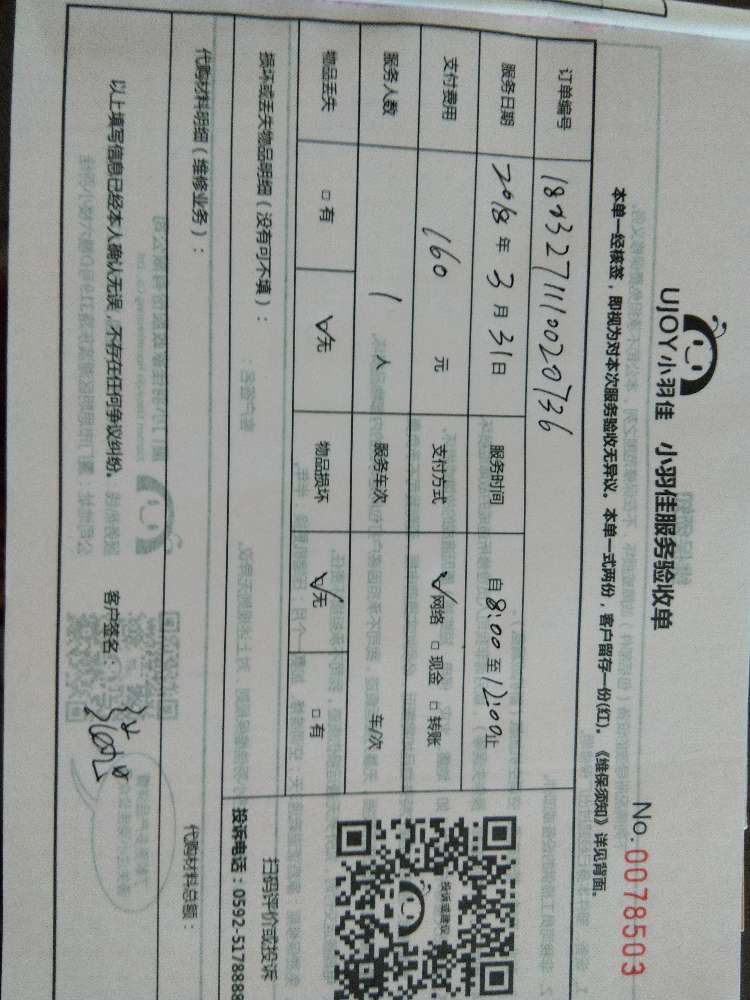 UJOY小羽佳 小羽佳服务验收单
No.0078503
本单一经核签，即视为对本次服务验收无异议。本单一式两份，客户留存一份(红)。《维保须知》详见背面。
订单编号
服务日期 2018年3月31日 服务时间 自8:00至12:00止
支付费用 160元 支付方式 ☑网络 □现金 □转账
服务人数 1人 服务车次 车/次
物品丢失 □有 ☑无 物品损坏 ☑无 □有
损坏或丢失物品明细（没有可不填）：
投诉或建议
扫码评价或投诉
投诉电话：0592-5178888
代购材料明细（维修业务）： 代购材料总额：
以上填写信息已经本人确认无误，不存在任何争议纠纷。 客户签名：